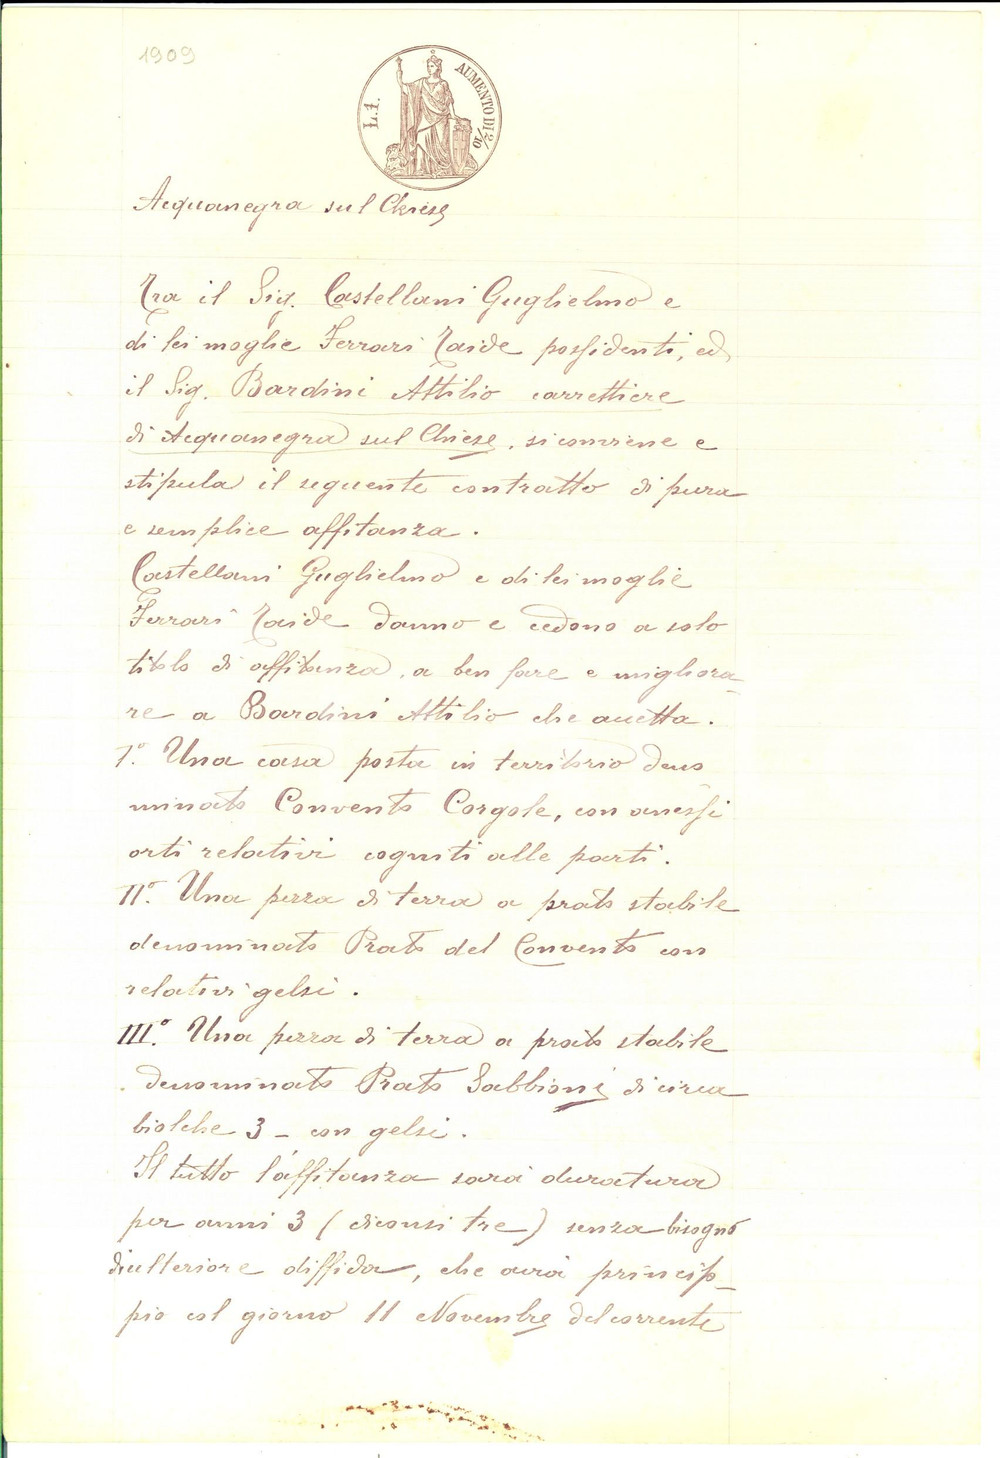 1909
L.1. AUMENTO DI 2/10
Acquanegra sul Chiese
Tra il Sig. Castellani Guglielmo e
di lei moglie Ferrari Taide possidenti, ed
il Sig. Bardini Attilio carrettiere
di Acquanegra sul Chiese, si conviene e
stipula il seguente contratto di pura
e semplice affitanza.
Castellani Guglielmo e di lei moglie
Ferrari Taide danno e cedono a solo
titolo di affitanza, a ben fare e migliora-
re a Bardini Attilio che accetta.
I.° Una casa posta in territorio deno
minato Convento Corgole, con anessi
orti relativi cogniti alle parti.
II.° Una pezza di terra a prato stabile
denominato Prato del Convento con
relativi gelsi.
III.° Una pezza di terra a prato stabile
denominato Prato Sabbioni di circa
biolche 3 - con gelsi.
Il tutto l'affitanza sarà duratura
per anni 3 (diconsi tre) senza bisogno
di ulteriore diffida, che avrà princip-
pio col giorno 11 Novembre del corrente